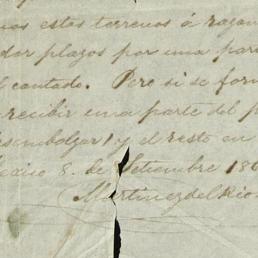 nos estos terrenos á razon
der plazos por una par
l contado. Pero si se for
recibir una parte del p
esembolzar) y el resto en
exico 8. de Setiembre 186
Martinez del Rio